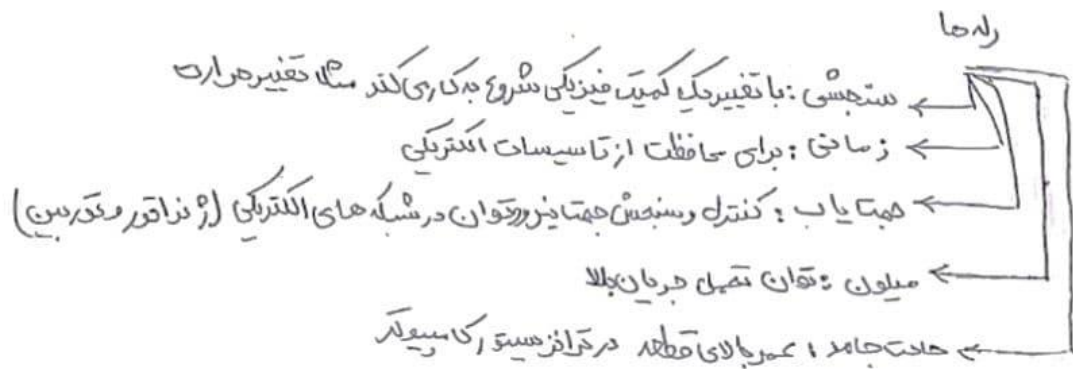 رله ها
سنجشی : با تغییر یک کمیت فیزیکی شروع به کار می کند مثلا تغییر حرارت
زمانی : برای محافظت از تاسیسات الکتریکی
جهت یاب : کنترل و سنجش جهت نیرو و توان در شبکه های الکتریکی (ژنراتور و توربین)
میلون : توان تحمل جریان بالا
حالت جامد : عمر بالای قطعه در ترانزیستور کامپیوتر